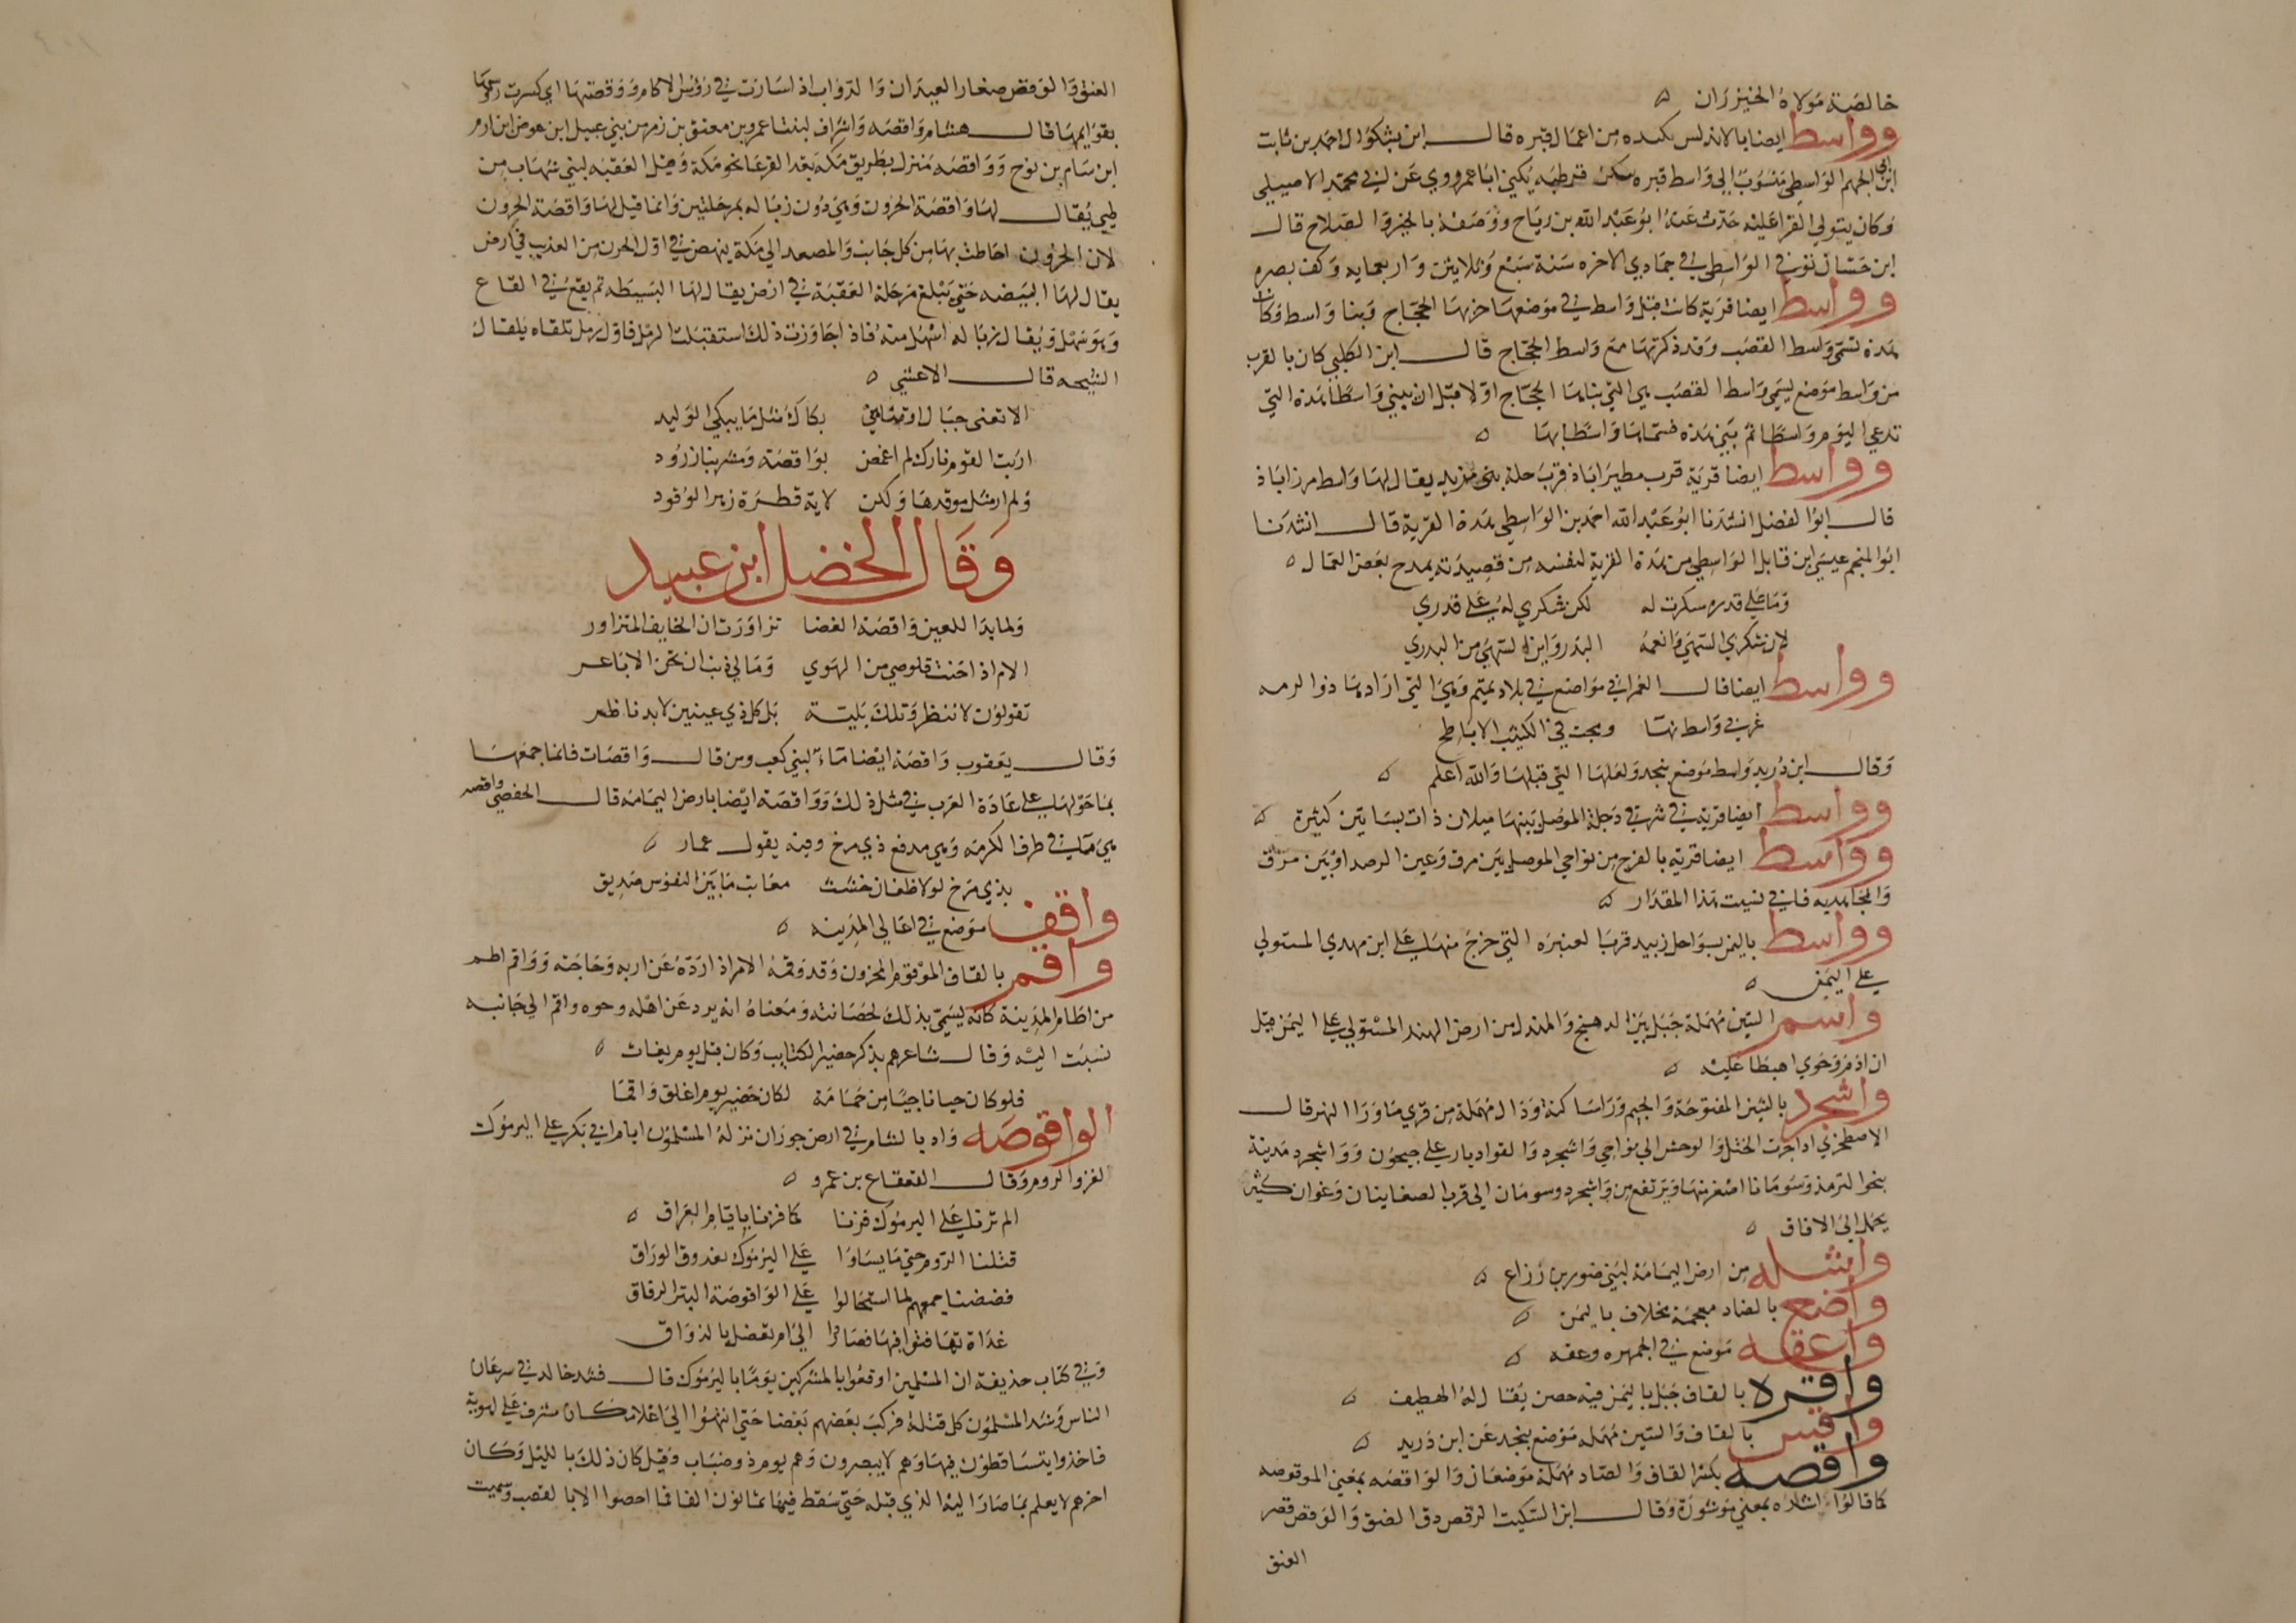 خالصة مولاة الخيزران ه
وواسط ايضا بالاندلس بلده من اعمال قبره قال ابن بشكوال احمد بن ثابت
ابن ابي الجهم الواسطي منسوب الي واسط قبره سكن قرطبه يكني ابا عمر روي عن ابي محمد الاصيلي
وكان يتولي القراة عليه حدث عنه ابو عبد الله بن رياح ووصفه بالخير والصلاح قال
ابن حسان توفي الواسطي في جمادي الاخره سنة سبع وثلاثين واربعمايه وكف بصره
وواسط ايضا قرية كانت قبل واسط في موضعها خربها الحجاج وبنا واسط وكانت
هذه تسمي واسط القصب وقد ذكرتها مع واسط الحجاج قال ابن الكلبي كان بالقرب
من واسط موضع يسمي واسط القصب هي التي بناها الحجاج اولا قبل ان يبني واسطا هذه التي
تدعي اليوم واسطا ثم بني هذه فسماها واسطا بها ه
وواسط ايضا قرية قرب مطيراباذ قرب حلة بني مزيد يقال لها واسط مرزاباذ
قال ابو الفضل انشدنا ابو عبد الله احمد بن الواسطي بهذه القرية قال انشدنا
ابو النجم عيسي ابن فاتك الواسطي من هذه القرية لنفسه من قصيدة يمدح بعض العمال ه
وما علي قدره سكرت له لكن شكري له علي قدري
لان شكري السهي وانعمه البدر واين السهي من البدر
وواسط ايضا قال العمراني مواضع في بلاد تميم وهي التي ارادها ذو الرمه
غربي واسط نها ومجت في الكثيب الاباطح
وقال ابن دريد واسط موضع بنجد ولعلها التي قبلها والله اعلم ه
وواسط ايضا قرية في شرقي دجلة الموصل بينها ميلان ذات بساتين كثيرة ه
وواسط ايضا قرية بالفرج من نواحي الموصل بين مرق وعين الرصد او بين مرق
والمجاهديه فاني نسيت هذا المقدار ه
وواسط باليمن بسواحل زبيد قرب العنبره التي خرج منها علي ابن مهدي المستولي
علي اليمن ه
واسم السين مهملة جبل بين الدهنج والمندل من ارض الهند المستولي علي اليمن قيل
ان ادم وحوي اهبطا عليه ه
واشجرد بالشين المفتوحة والجيم وراء ساكنة ودال مهملة من قري ما ورا النهر قال
الاصطخري اذا جزت الختل والوخش الي نواحي واشجرد والقواديار علي جيحون وواشجرد مدينة
نحو الترمذ وسومان اصغر منها ويرتفع من واشجرد وسومان الي قرب الصغانيان زعفران كثير
يحمل الي الافاق ه
واشله من ارض اليمامة لبني ضور بن رزاح ه
واضع بالضاد معجمة مخلاف باليمن ه
واعقه موضع في الجمهره وعقه ه
واقره بالقاف جبل باليمن فيه حصن يقال له الهطيف ه
واقس بالقاف والسين مهمله موضع بنجد عن ابن دريد ه
واقصه بكسر القاف والصاد مهملة موضعان والواقصه بمعني الموقوصه
كما قالوا اشاره بمعني موشورة وقال ابن السكيت الوقص دق العنق والوقص قصر
العنق
العنق والوقص صغار العيدان والدواب اذا سارت في رؤس الاكام ووقصتها اي كسرت رءوسها
بقوايمها قال هشام واقصه واشراف ابنتا عمرو بن معنق بن زمر من بني عبيل ابن عوض ابن ارم
ابن سام بن نوح وواقصه منزل بطريق مكة بعد القرعا نحو مكة وقبل العقبه لبني شهاب من
طي يقال لها واقصة الحزون وهي دون زباله بمرحلتين وانما قيل لها واقصة الحزون
لان الحزون احاطت بها من كل جانب والمصعد الي مكة ينهض في اول الحزن من العذيب في ارض
يقال لها البيضه حتي يبلغ مرحلة العقبة في ارض يقال لها البسيطه ثم يقع في القاع
وهو سهل ويقال زباله اسهل منه فاذا جاوزت ذلك استقبلت الرمل فاول رمل تلقاه يقال
الشيحه قال الاعشي ه
الا تعني حبال او تناهي بكاك مثل ما يبكي الوليد
اريت القوم نارك لم اغمض بواقصة ومشربنا زرود
ولم ار مثل موقدها ولكن لاية قطرة زهر الوقود
وقال الخضل ابن عبيد
ولما بدا للعين واقصة الغضا تزاورت ان الخايف المتزاور
الام اذا احنت قلوصي من الهوي ومالي ذنب ان تحن الاباعر
تقولون لا تنظر وتلك بلية بل كل ذي عينين لا بد ناظر
وقال يعقوب واقصة ايضا ماء لبني كعب ومن قال واقصات فانما جمعها
بما حولها علي عادة العرب في مثل ذلك وواقصة ايضا بارض اليمامة قال الحفصي واقصه
هي ماء في طرف الكرمه وهي مدفع ذي مرخ وفيه يقول عمار ه
بذي مرخ لولا ظعان خشنت معاتب ما بين النفوس صديق
واقف موضع في اعالي المدينه ه
واقم بالقاف الموقوم المحزون وقد وقمه الامر اذا رده عن اربه وحاجته وواقم اطم
من اطام المدينة كانه يسمي بذلك لحصانته ومعناه انه يرد عن اهله وحره واقم الي جانبه
نسبت اليه وقال شاعرهم يذكر حضير الكتايب وكان قتل يوم بعاث ه
فلو كان حيا ناجيا من حمامة لكان حضير يوم اغلق واقما
الواقوصه واد بالشام في ارض حوران نزله المسلمون ايام ابي بكر علي اليرموك
لغزو الروم وقال القعقاع بن عمرو ه
الم ترنا علي اليرموك فزنا كما فزنا بايام العراق ه
قتلنا الروم حتي ما يساوا علي اليرموك بعدوق الوراق
فضضنا جمعهم لما استحالوا علي الواقوصة البتر الرقاق
غداة تهافتوا فيها فصاروا الي امر تعضل بالذواق
وفي كتاب حذيفة ان المسلمين اوقعوا بالمشركين يوما باليرموك قال فشد خالد في سرعان
الناس وشد المسلمون كل قتلة فركب بعضهم بعضا حتي انتهوا الي اعلا مكان مشرف علي اهوية
فاخذوا يتساقطون فيها وهم لا يبصرون وهم يوم ذو ضباب وقيل كان ذلك بالليل وكان
اخرهم لا يعلم بما صار اليه الذي قبله حتي سقط فيها ثمانون الفا فما احصوا الا بالقصب وسميت